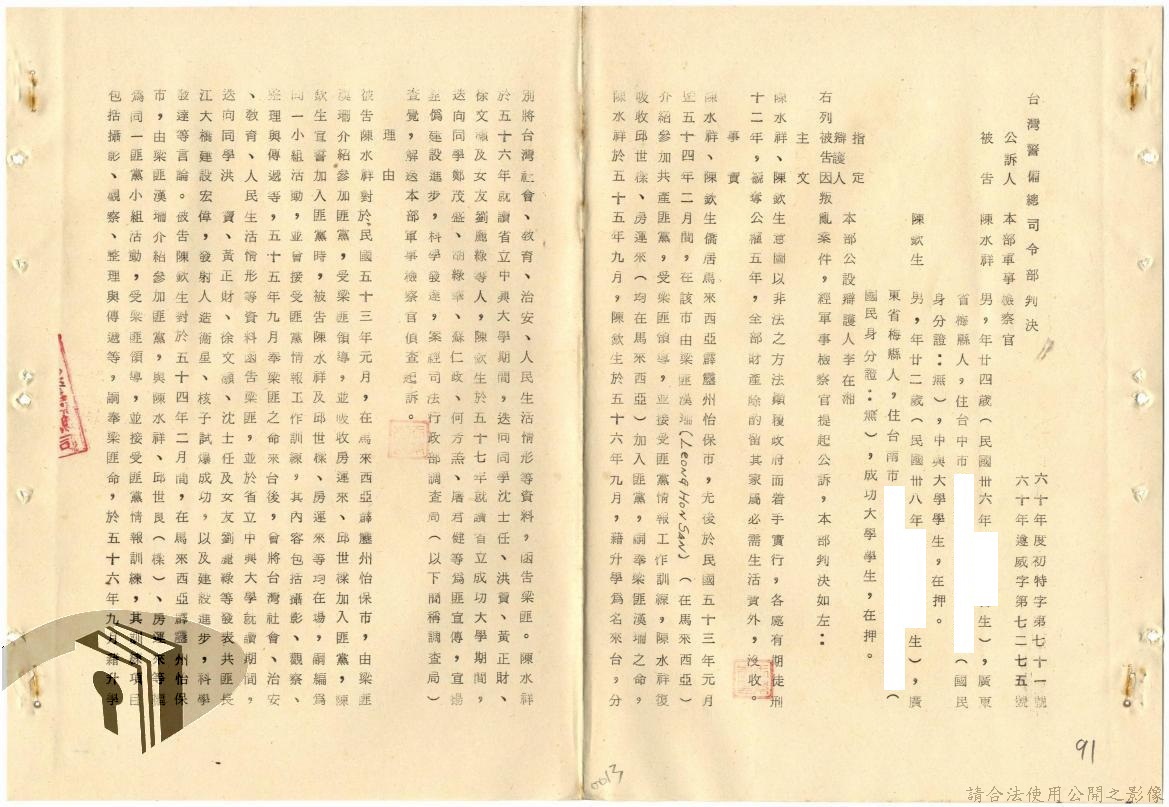 台灣警備總司令部判決
六十年度初特字第七十一號
六十年遂威字第七二七五號
公訴人 本部軍事檢察官
被告 陳水祥 男，年廿四歲（民國卅六年
生），廣東
省梅縣人，住台中市
（國民
身分證：無），中興大學學生，在押。
陳欽生 男，年廿二歲（民國卅八年
生），廣
東省梅縣人，住台南市
（
國民身分證：無），成功大學學生，在押。
指定
辯護人 本部公設辯護人李在湘
右列被告因叛亂案件，經軍事檢察官提起公訴，本部判決如左：
主文
陳水祥、陳欽生意圖以非法之方法顛覆政府而着手實行，各處有期徒刑
十二年，褫奪公權五年，全部財產除酌留其家屬必需生活費外，沒收。
事實
陳水祥、陳欽生僑居馬來西亞霹靂州怡保市，先後於民國五十三年元月
暨五十四年二月間，在該市由梁匪漢珊(LEONG HON SAN)（在馬來西亞）
介紹參加共產匪黨，受梁匪領導，並接受匪黨情報工作訓練，陳水祥復
吸收邱世樑、房運來（均在馬來西亞）加入匪黨，嗣奉梁匪漢珊之命，
陳水祥於五十五年九月，陳欽生於五十六年九月，藉升學爲名來台，分
別將台灣社會、教育、治安、人民生活情形等資料，函告梁匪。陳水祥
於五十六年就讀省立中興大學期間，迭向同學沈士任、洪賫、黃正財、
徐文灝及女友劉麗祿等人，陳欽生於五十七年就讀省立成功大學期間，
迭向同學鄭茂盛、胡綠華、蘇仁政、何方燕、屠君健等爲匪宣傳，宣揚
匪僞建設進步，科學發達，案經司法行政部調查局（以下簡稱調查局）
查覺，解送本部軍事檢察官偵查起訴。
理由
被告陳水祥對於民國五十三年元月，在馬來西亞霹靂州怡保市，由梁匪
漢珊介紹參加匪黨，受梁匪領導，並吸收房運來、邱世樑加入匪黨，陳
欽生宣誓加入匪黨時，被告陳水祥及邱世樑、房運來等均在場，嗣編爲
同一小組活動，並曾接受匪黨情報工作訓練，其內容包括攝影、觀察、
整理與傳遞等，五十五年九月奉梁匪之命來台後，曾將台灣社會、治安
、教育、人民生活情形等資料函告梁匪，並於省立中興大學就讀期間，
迭向同學洪賫、黃正財、徐文灝、沈士任及女友劉麗祿等發表共匪長
江大橋建設宏偉，發射人造衞星、核子試爆成功，以及建設進步，科學
發達等言論。被告陳欽生對於五十四年二月間，在馬來西亞霹靂州怡保
市，由梁匪漢珊介紹參加匪黨，與陳水祥、邱世良（樑）、房運來等編
爲同一匪黨小組活動，受梁匪領導，並接受匪黨情報訓練，其訓練項目
包括攝影、觀察、整理與傳遞等，嗣奉梁匪命，於五十六年九月藉升學
91
0013
請合法使用公開之影像